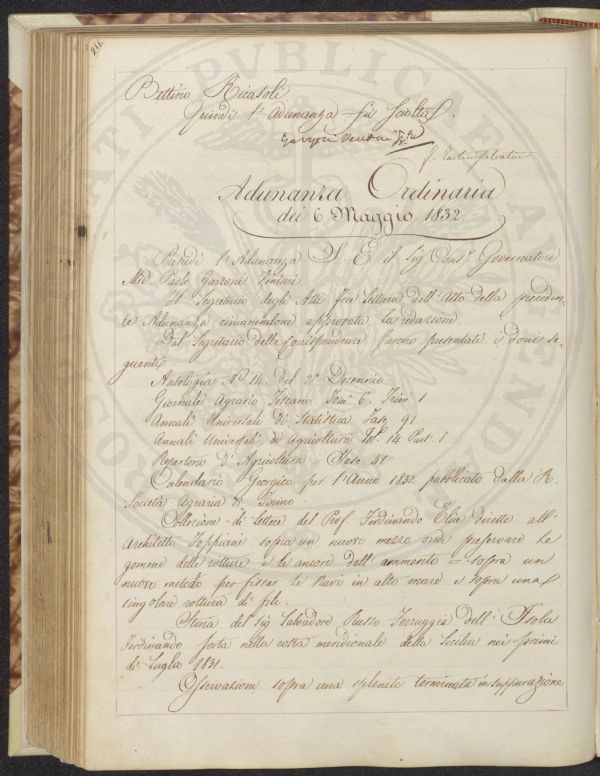 216
Bettino Ricasoli
Quindi l'Adunanza fu sciolta
Adunanza Ordinaria
dei 6 Maggio 1832
Presiede l'Adunanza S. E. il Sig. Governatore
Paolo Garzoni Venturi
Il Segretario degli Atti fece lettura dell'Atto della preceden-
te Adunanza rimanendone approvata la redazione
Dal Segretario delle Corrispondenze furono presentati i doni se-
guenti
Antologia N.° 14 del 2.° Decennio
Giornale Agrario Toscano Tom. 6 Trim 1
Annali Universali di Statistica Fasc 91
Annali Universali di Agricoltura Vol. 14 Part. 1
Repertorio d'Agricoltura - Fasc. 41
Calendario Georgico per l'Anno 1832 pubblicato dalla R.
Società Agraria di Torino
Collezione di lettere del Prof. Ferdinando Elice dirette all'
Architetto sopra un nuovo mezzo onde preservare le
gomene delle rotture e le ancore dall' = sopra un
nuovo metodo per fissar le Navi in alto mare e sopra una
singolare rottura di
Storia del Sig Salvadore Russo Ferruggia dell'Isola
Ferdinando sorta nella costa meridionale della Sicilia nei primi
di Luglio 1831.
Osservazioni sopra una splenite terminata in suppurazione